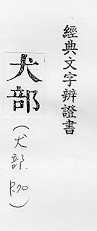 經典文字辨證書
犬部
(犬部.